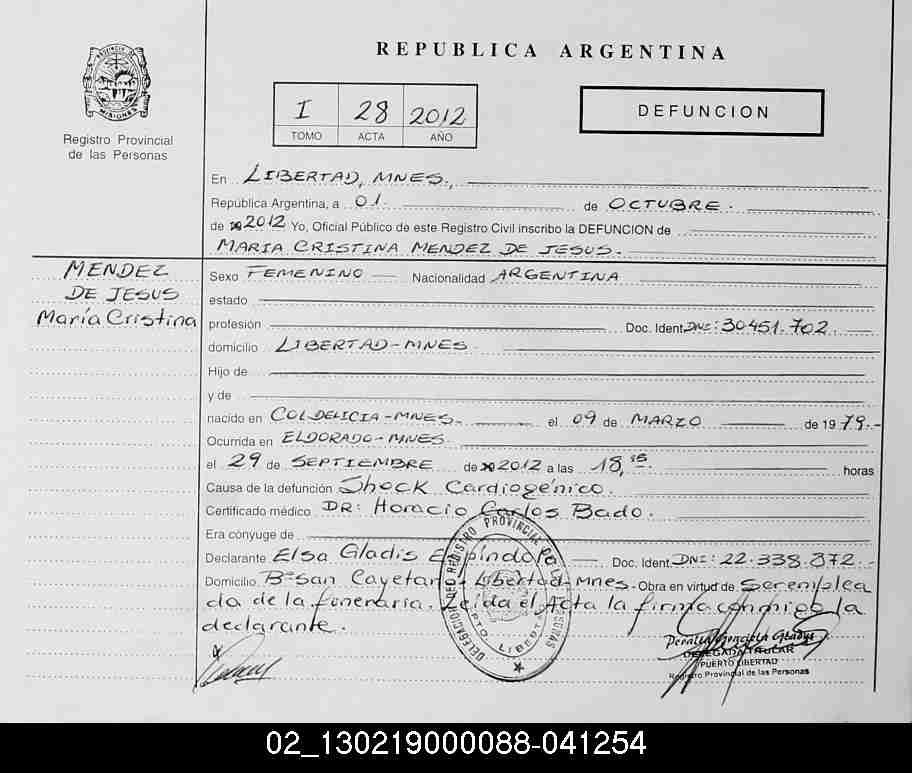 REPUBLICA ARGENTINA
PROVINCIA DE MISIONES
Registro Provincial
de las Personas
I 28 2012
TOMO ACTA AÑO
DEFUNCION
En LIBERTAD, MNES.,
República Argentina, a 01 de OCTUBRE.
de 2012 Yo, Oficial Público de este Registro Civil inscribo la DEFUNCION de
MARIA CRISTINA MENDEZ DE JESUS.
MENDEZ
DE JESUS
María Cristina
Sexo FEMENINO Nacionalidad ARGENTINA
estado
profesión Doc. Ident. DNI: 30451.702.
domicilio LIBERTAD-MNES
Hijo de
y de
nacido en COLDELICIA-MNES. el 09 de MARZO de 1979.-
Ocurrida en ELDORADO-MNES.
el 29 de SEPTIEMBRE de 2012 a las 18,15. horas
Causa de la defunción Shock Cardiogénico.
Certificado médico DR: Horacio Carlos Bado.
Era cónyuge de
Declarante Elsa Gladis Espíndola Doc. Ident. DNI: 22.338.872.-
Domicilio Bº san Cayetano - Libertad-Mnes- Obra en virtud de Ser emplea
da de la funeraria. Leida el Acta la firma conmigo la
declarante.
DELEGACION DEO REGISTRO PROVINCIAL DE LAS PERSONAS
PTO. LIBERTAD
Peralta Graciela Gladys
DELEGADA TITULAR
PUERTO LIBERTAD
Registro Provincial de las Personas
02_130219000088-041254